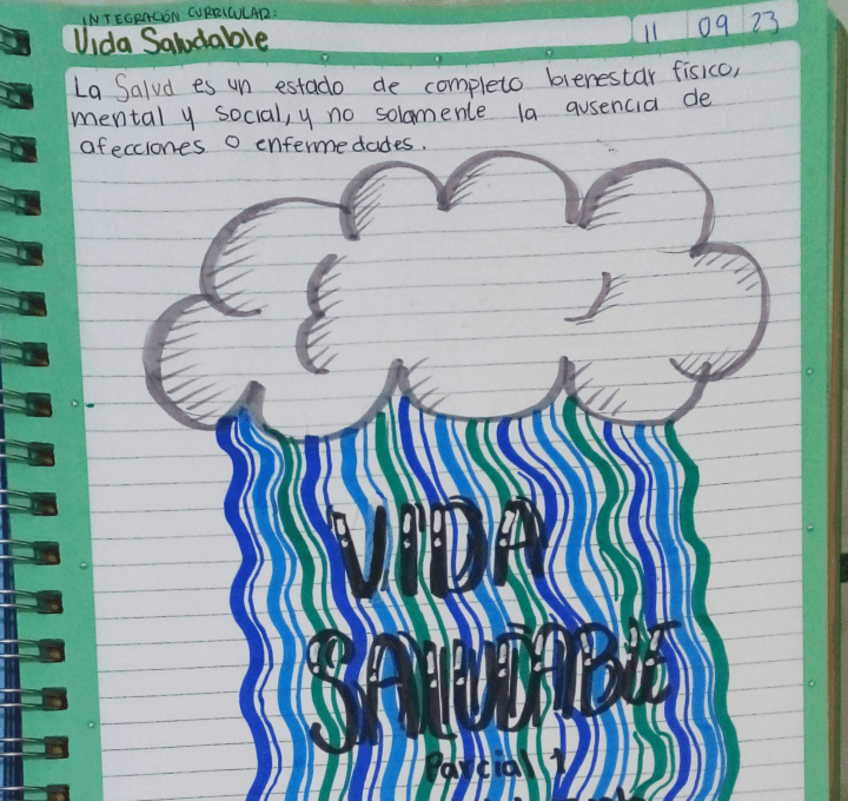 INTEGRACIÓN CURRICULAR:
Vida Saludable
11 09 23
La Salud es un estado de completo bienestar físico,
mental y social, y no solamente la ausencia de
afecciones o enfermedades.
VIDA
SALUDABLE
Parcial 1